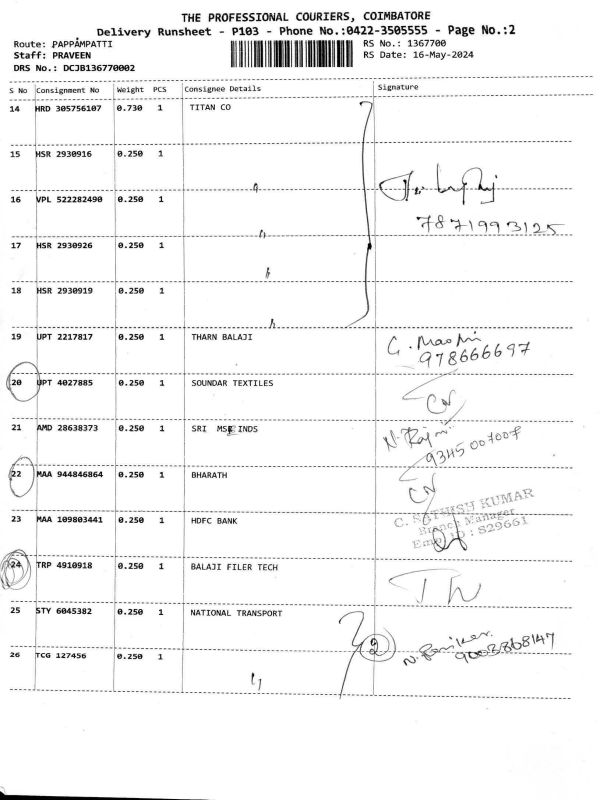 THE PROFESSIONAL COURIERS, COIMBATORE
Delivery Runsheet - P103 - Phone No.:0422-3505555 - Page No.:2
Route: PAPPAMPATTI
RS No.: 1367700
Staff: PRAVEEN
RS Date: 16-May-2024
DRS No.: DCJB136770002
S No Consignment No Weight PCS Consignee Details Signature
14 HRD 305756107 0.730 1 TITAN CO
15 HSR 2930916 0.250 1
16 VPL 522282490 0.250 1
7871993125
17 HSR 2930926 0.250 1
18 HSR 2930919 0.250 1
19 UPT 2217817 0.250 1 THARN BALAJI
978666697
20 UPT 4027885 0.250 1 SOUNDAR TEXTILES
CN
21 AMD 28638373 0.250 1 SRI MSR INDS
9345007007
22 MAA 944846864 0.250 1 BHARATH
CN
23 MAA 109803441 0.250 1 HDFC BANK
C. SATHISH KUMAR
Branch Manager
Emp ID : S29661
24 TRP 4910918 0.250 1 BALAJI FILER TECH
25 STY 6045382 0.250 1 NATIONAL TRANSPORT
2
9003868147
26 TCG 127456 0.250 1